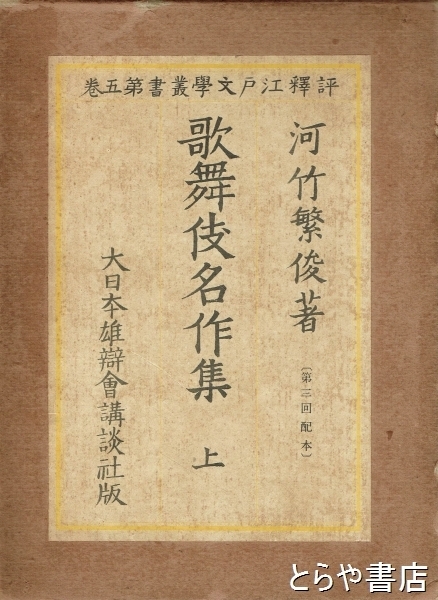 評釋江戸文學叢書第五卷
河竹繁俊著
〔第三回配本〕
歌舞伎名作集 上
大日本雄辯會講談社版
とらや書店